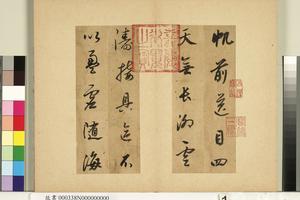 帆前送目四
天無長湖雲
濤接具區不
以盈虛隨海
故書000338N000000000